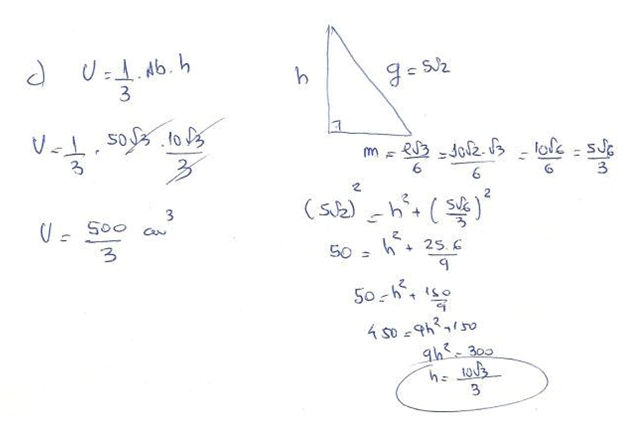 c) V = 1/3 . Ab . h
V = 1/3 . 50√3 . 10√3/3
V = 500/3 cm³
h
g = 5√2
m = l√3/6 = 10√2.√3/6 = 10√6/6 = 5√6/3
(5√2)² = h² + (5√6/3)²
50 = h² + 25.6/9
50 = h² + 150/9
450 = 9h² + 150
9h² = 300
h = 10√3/3